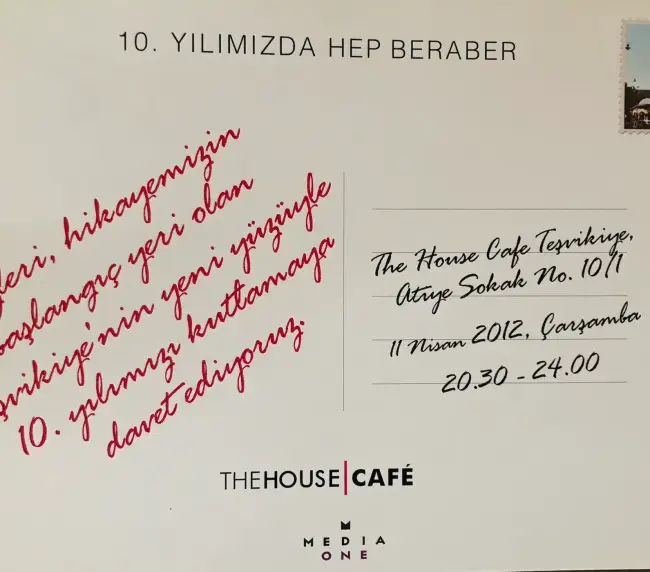 10. YILIMIZDA HEP BERABER
hikayemizin
yeri olan
yeni yüzüyle
10. yılımızı kutlamaya
davet ediyoruz.
The House Cafe Teşvikiye,
Atiye Sokak No. 10/1
11 Nisan 2012, Çarşamba
20.30 - 24.00
THEHOUSE|CAFÉ
MEDIA
ONE